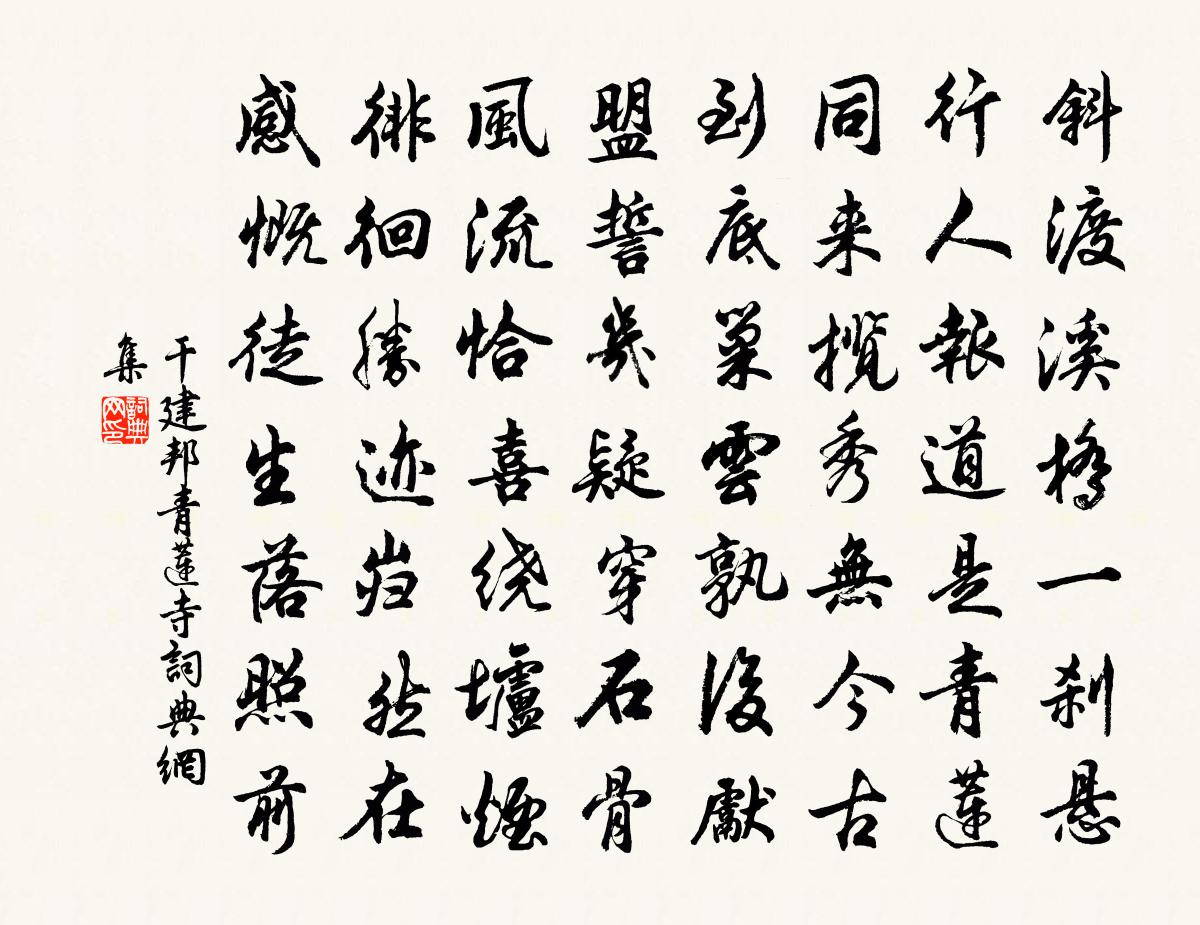 斜渡溪橋一刹懸
行人報道是青蓮
同来攬秀無今古
到底巢雲孰後獻
盟誓幾疑穿石骨
風流恰喜绕壚煙
徘徊勝迹岿然在
感慨徒生落照前
干建邦青蓮寺詞典網
集
詞典
网印